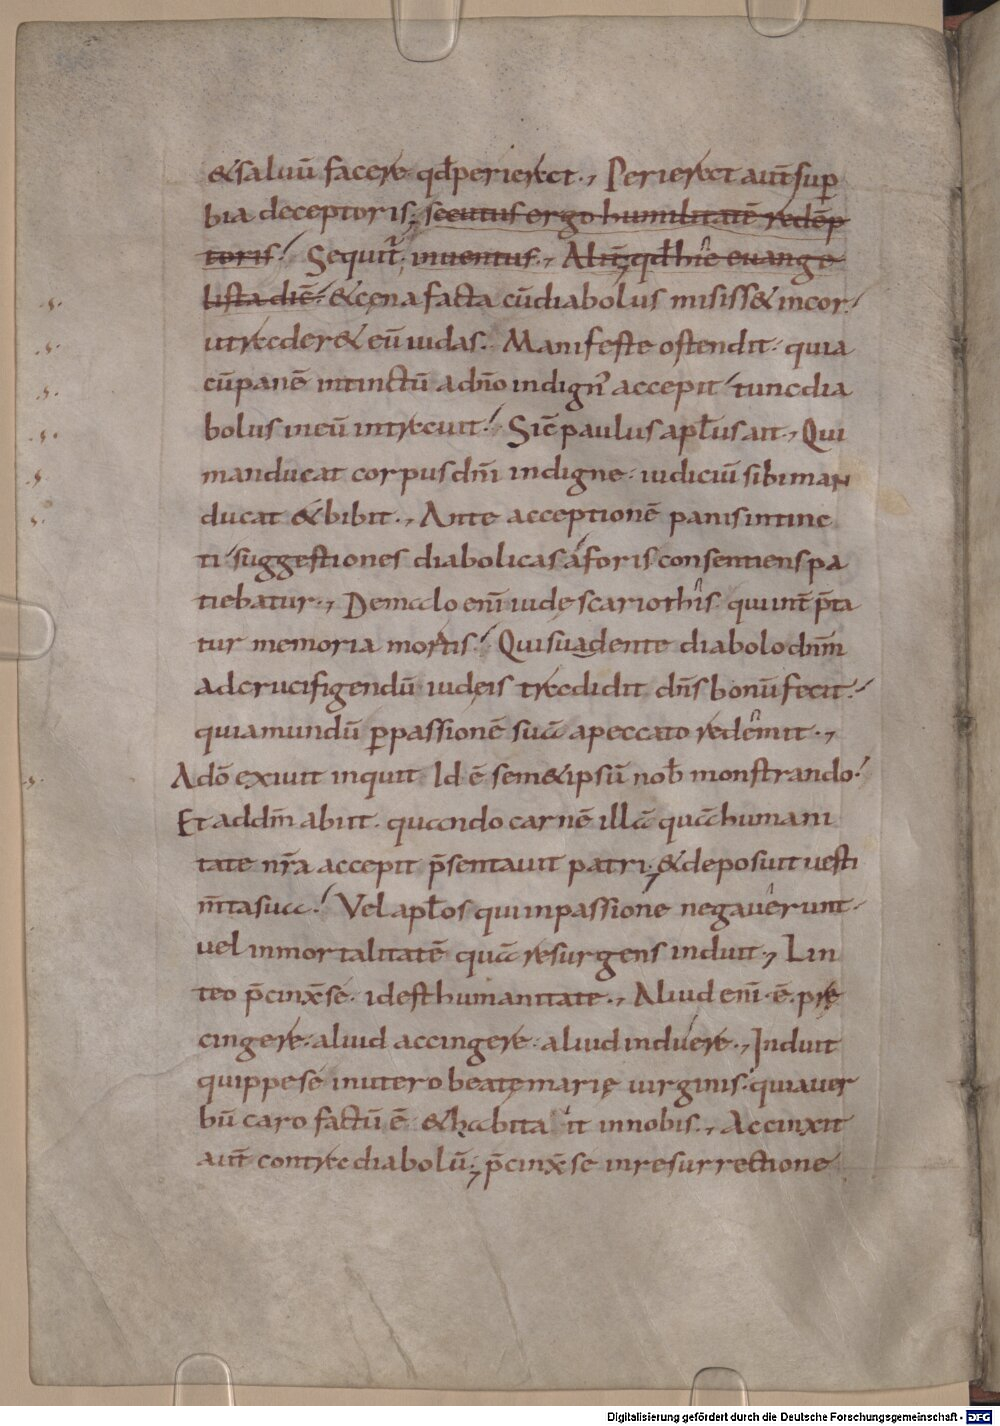 &saluū facere qđperierat., Perierat aut̄sup
bia deceptoris., secutus ergo humilitatē redēp
toris! Sequit̄. inuentus., Alit̄ qđhic euange
lista diē. &cęna facta cūdiabolus misiss& incor!
utrader& eū iudas. Manifeste ostendit. quia
cūpanē intinctū adn̄o indignͥ accepit! tuncdia
bolus ineū intrauit! Sic̄ paulus apl̄us ait., Qui
manducat corpus dn̄i indigne. iudiciū sibi maN
ducat &bibit., Ante acceptionē panis intinc
ti! suggestiones diabolicas áforis consentiens pa
tiebatur., Demalo eni̅ iudę scariothis. qui int̄ p̄ta
tur memoria mortis! Qui suadente diabolo dnm̄
adcrucifigendū iudeis tradidit dn̄s bonū fecit!
quiamundū ꝑpassionē suā apeccato redemit.,
Adō exiuit inquit Id ē sem&ipsū nob̄ monstrando!
Et addm̄ abiit. quando carnē illā quā humani
tate nr̄a accepit p̄sentauit patri., &deposuit uesti
m̄tasua! Vel apl̄os qui inpassione negauerunt.
uel inmortalitatē quā resurgens induit., Lin
teo p̄cinx̄ se. idest humanitate., Aliud eni̅. ē. prę
cingere. aliud accingere. aliud induere., Induit
quippe sé inutero beatę marię uirginis! quia uer
bū caro factū ē &habita it innobis., Accinxit
aut̄ contra diabolū., p̄cinx̄ se inresurrectione
Digitalisierung gefördert durch die Deutsche Forschungsgemeinschaft - DFG